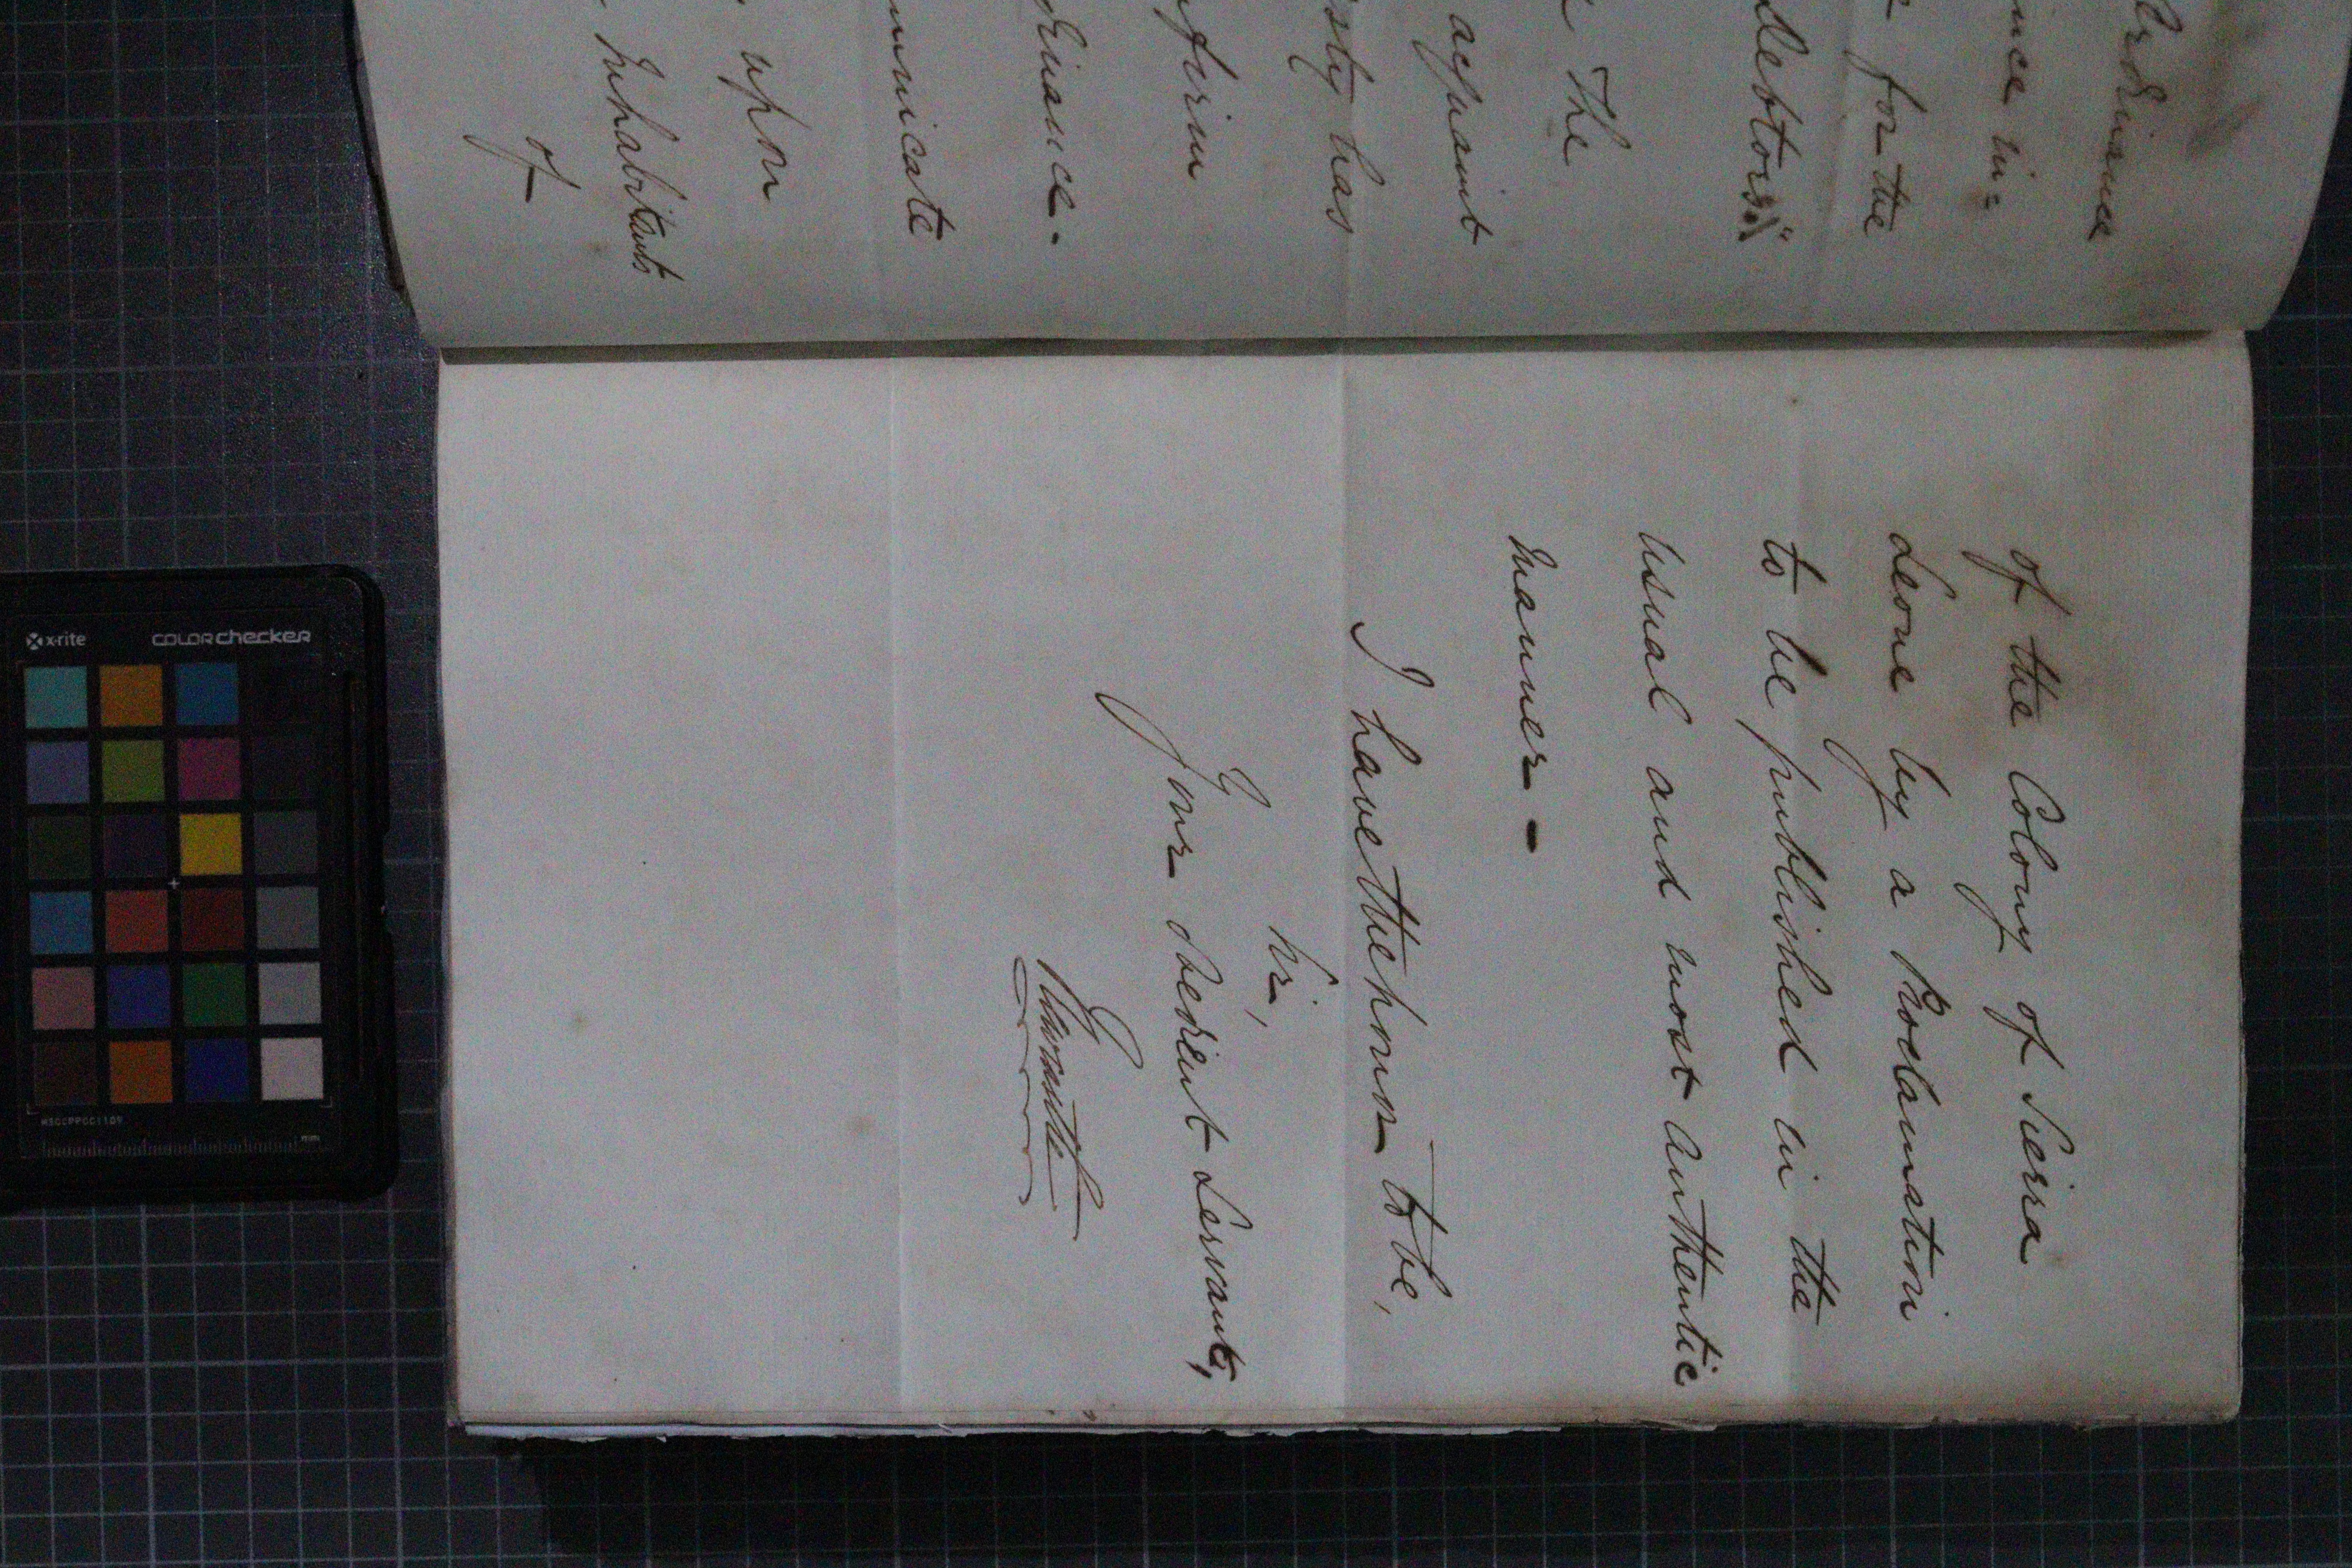 Ordinance
nce in=
for the
Debtors"
The
acquaint
sty has
firm
dinance.
municate
upon
Inhabitants
of
of the Colony of Sierra
Leone by a Proclamation
to be published in the
usual and most authentic
manner -
I have the honor to be,
Sir,
Your obedient Servant,
x-rite
COLORchecker
mm